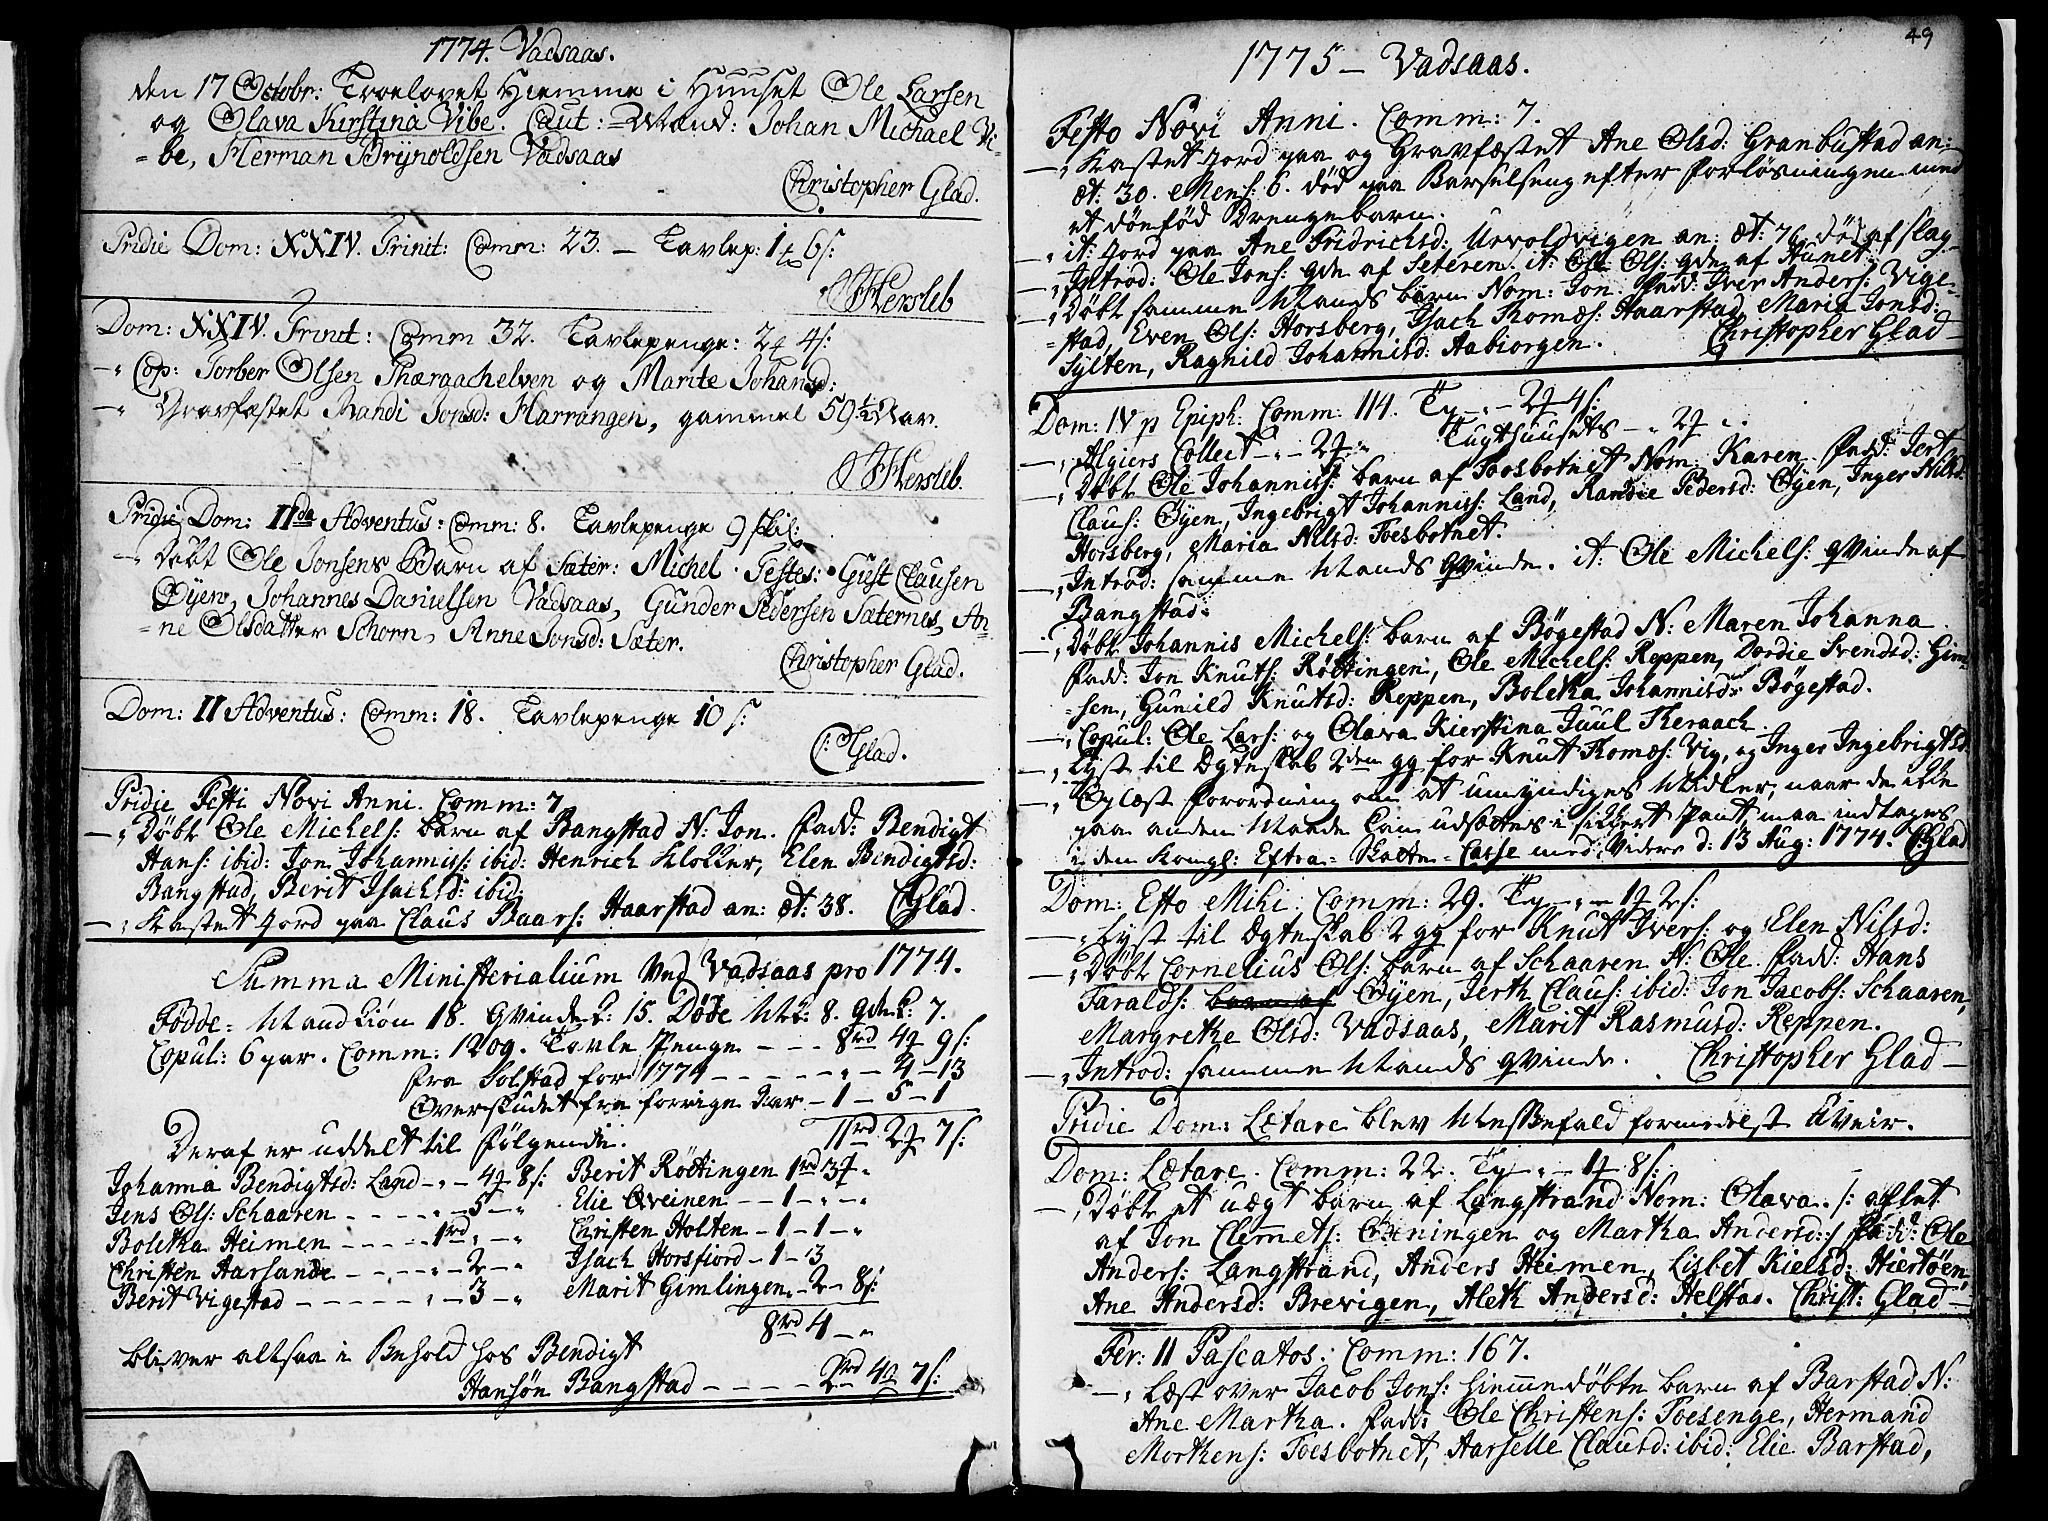 1774. Vadsaas.
den 17 Octobr: Troelovet Hiemme i Huuset Ole Larsen
og Olava Kirstina Vibe. Caut:=Mænd: Johan Michael Vi-
=be, Herman Brÿnoldsen Vadsaas
Christopher Glad.
Pridie Dom: XXIV. Trinit: Comm: 23. — Tavlep: 1 ꝑ 6 s:
Hersleb
Dom: XXIV. Trinit: Comm 32. Tavlepenge: 2 ꝑ 4 s:
—" Cop: Torber Olsen Thæraachelven og Marite Johansd:
—" Gravfæstet Randi Jonsd: Harrangen, gammel 50½ Aar.
Hersleb.
Pridie Dom: IIda Adventus: Comm: 8. Tavlepenge 9 skil:
—" Døbt Ole Jonsens Barn af Sæter: Michel. Testes: Gust Clausen
Øÿen, Johannes Danielsen Vadsaas, Gunder Pedersen Sæternes, An-
=ne Olsdatter Schorn, Anne Jonsd: Sæter.
Christopher Glad.
Dom: II Adventus: Comm: 18. Tavlepenge 10 s:
C: Glad.
Pridie Festi Novi Anni. Comm: 7
—" Døbt Ole Michels: barn af Bangstad N: Jon. Fadd: Bendigt
Hans: ibid: Jon Johanniss: ibid: Henrich Klokker, Elen Bendigtsd:
Bangstad, Berit Isachsd: ibid:
—" Kastet Jord paa Claus Baars: Haarstad an: æt: 38. CGlad.
Summa Ministerialium Ved Vadsaas pro 1774.
Fødde= Mandkiøn 18. Qvinde K: 15. Døde Mk: 8. Qde K: 7.
Copul: 6 par. Comm: 1209. Tavle Penge - - - 8rd 4ꝑ 9 s:
fra Solstad for 1774 - - - - - " — 4 — 13
Overskudet fra forrige Aar — 1 — 5 — 1
Deraf er uddelt til følgende. 11rd 2ꝑ 7 s:
Johanna Bendigtsd: Land — " — 4ꝑ 8 s: Berit Røttingen 1rd 3ꝑ "
Jens Ols: Schaaren - - - - " — 5 — " Elie Qveinen — — 1 — " — "
Boletha Heimen - - - - 1rd " — " Christen Holten — 1 — 1 — "
Christen Aarsande - - - - " — 2 — " Isach Horsfiord — 1 — 3
Berit Vigestad - - - - - " — 3 — " Marit Gimlingen " — 2 — 8 s:
8rd 4 — "
bliver altsaa i Behold hos Bendigt
Hansøn Bangstad - - - - - 2rd 4ꝑ 7 s:
49
1775 — Vadsaas.
Festo Novi Anni. Comm: 7.
—" Kastet Jord paa og Gravfæstet Ane Olsd: Granbustad an:
æt: 30. Mens: 6. død paa Barselseng efter forløsningen med
et dønfød Drengebarn.
—" it: Jord paa Ane Fridrichsd: Urvoldvigen an: æt: 76 død af slag
—" Introd: Ole Jons: qde af Seteren. it: Ole Ols: qde af Hunet.
—" Døbt samme Mands barn Nom: Jon. Fad: Iver Anders: Vige-
=stad, Even Ols: Horsberg, Isach Thomæs: Haarstad, Maria Jonsd:
Sylten, Ragnild Johannisd: Aabiorgen. Christopher Glad—
Dom: IV p Epiph: Comm: 114. Tp — " — 2ꝑ 4 s:
—" Algiers Collect — " — 2ꝑ " Tugthuusets — " 2ꝑ "
—" Døbt Ole Johanniss: barn af Foosbotnet Nom: Karen. Fadd: Jert
Claus: Øyen, Ingebrigt Johanniss: Land, Randie Pedersd: Øyen, Inger Nilsd:
Horsberg, Maria Nilsd: Foesbotnet.
—" Introd: samme Mands qvinde. it: Ole Michels: qvinde af
Bangstad.
—" Døbt Johannis Michels: barn af Bøgestad N: Maren Johanna.
Fadd: Jon Knuts: Røttingen, Ole Michels: Reppen, Dordie Svendsd: Gim
=sen, Gunild Knutsd: Reppen, Boletha Johannisd: Bøgestad.
—" Copul: Ole Lars: og Olava Kierstina Juul Theraach.
—" Lyst til Ægteskab 2den gg for Knut Thomæs: Vig, og Inger Ingebrigtsd:
—" Oplæst forordning om at umyndiges Midler, naar de ikke
paa anden Maade kan udsættes i sikkert Pant, maa indtages
i den Kongl: Extra=Skatte=Casse med Videre d: 13 Aug: 1774. CGlad
Dom: Esto Mihi. Comm: 29. Tp — " — 1ꝑ 2 s:
—" Lyst til Ægteskab 2 gg for Knut Ivers: og Elen Nilsd:
—" Døbt Cornelius Ols: barn af Schaaren N: Ole. Fadd: Hans
Taralds: barn af Øyen, Jerth Claus: ibid: Jon Jacobs: Schaaren,
Margrethe Olsd: Vadsaas, Marit Rasmusd: Reppen.
—" Introd: samme Mands qvinde. Christopher Glad—
Pridie Dom: Lætare blev Messefald formedelst Uveir.
Dom: Lætare. Comm: 22. Tp — " — 1ꝑ 8 s:
—" Døbt et uægt barn af Langstrand Nom: Olava. /: aflet
af Jon Clemets: Qveningen og Martha Andersd: :/ Fadd: Ole
Anders: Langstrand, Anders Heimen, Lisbet Kielsd: Hiertøen,
Ane Andersd: Brevigen, Aleth Andersd: Helstad. Christ: Glad—
Fer: II Pascatos. Comm: 167.
—" Læst over Jacob Jons: hiemmedøbte barn af Barstad N:
Ane Martha. Fadd: Ole Christens: Foesenge, Hermand
Morthens: Foesbotnet, Aarselle Clausd: ibid: Elie Barstad,